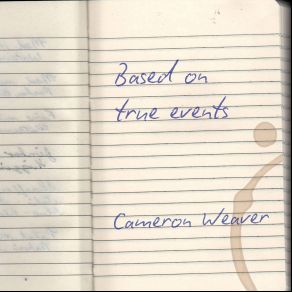 Based on
true events
Cameron Weaver